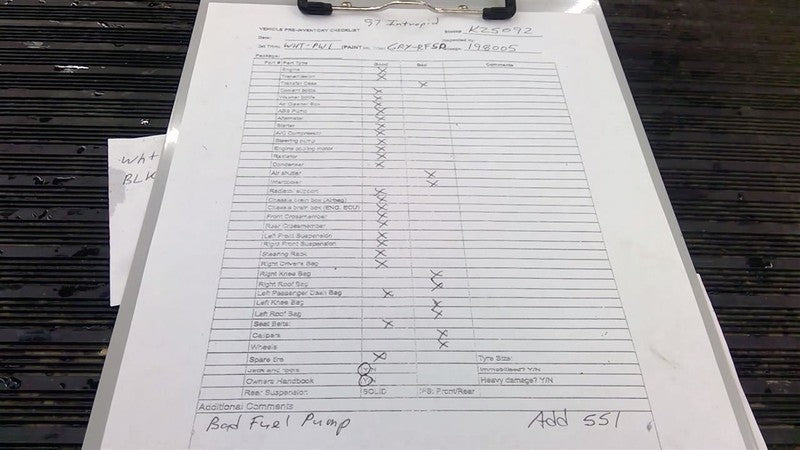 97 Intrepid
VEHICLE PRE-INVENTORY CHECKLIST K25092
Date:
WHT-PWL (PAINT GRY-RFSD 198005
Package:
Part # Part Type Good Bad Comments
Engine X
Transmission X
Transfer Case X
Coolant bottle X
Washer bottle X
Air Cleaner Box X
ABS Pump X
Alternator X
Starter X
A/C Compressor X
Steering pump X
Engine cooling motor X
Radiator X
Condenser X
Air shutter X
Intercooler X
Radiator support X
Chassis brain box (Airbag) X
Chassis brain box (ENG. ECU) X
Front Crossmember X
Rear Crossmember X
Left Front Suspension X
Right Front Suspension X
Steering Rack X
Right Driver's Bag X
Right Knee Bag X
Right Roof Bag X
Left Passenger Dash Bag X
Left Knee Bag X
Left Roof Bag X
Seat Belts: X
Calipers X
Wheels X
Spare tire X Tyre Size:
Jack and tools Y Immobilised? Y/N
Owners Handbook Y Heavy damage? Y/N
Rear Suspension SOLID IFS: Front/Rear
Additional Comments
Bad Fuel Pump Add 551
Wht
BLK